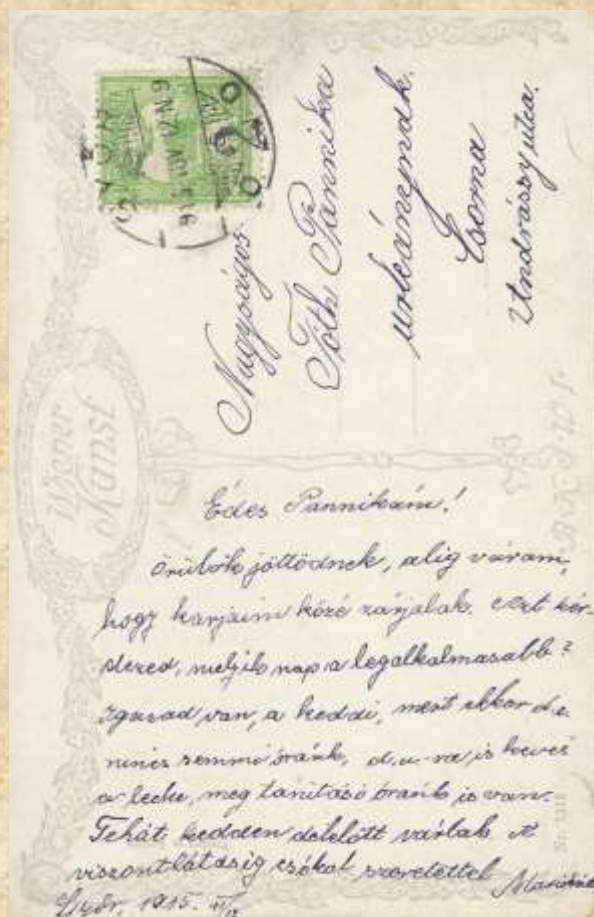 Nagyságos
Tóth Pannika
urleánynak.
Csorna
Andrássy utca.
Wiener
Kunst
Édes Pannikám!
örülök jöttödnek, alig várom,
hogy karjaim közé zárjalak. ezt kér-
dezed, melyik nap a legalkalmasabb?
Igazad van, a keddi, mert akkor d.e.
nincs semmi óránk, d.u.-ra is kevés
a lecke, meg tanitási óránk is van.
Tehát kedden délelőtt várlak. A
viszontlátásig csókol szeretettel
Győr, 1915.